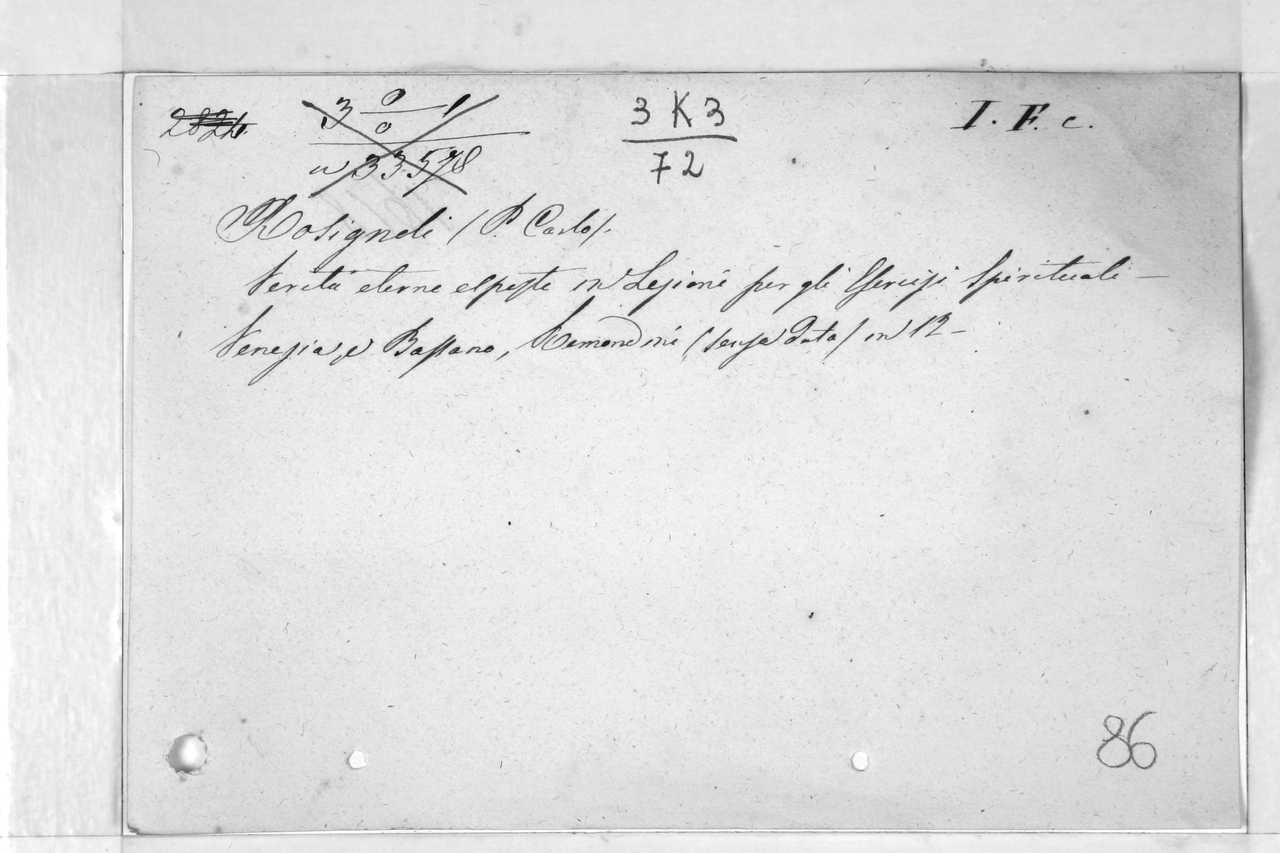 3 K 3
72
I. F. c.
n 33578
Rosignoli (P. Carlo).
Verità eterne esposte in Lezioni per gli Esercizi Spirituali —
Venezia, e Bassano, Remondini (senza data) in 12 —
86